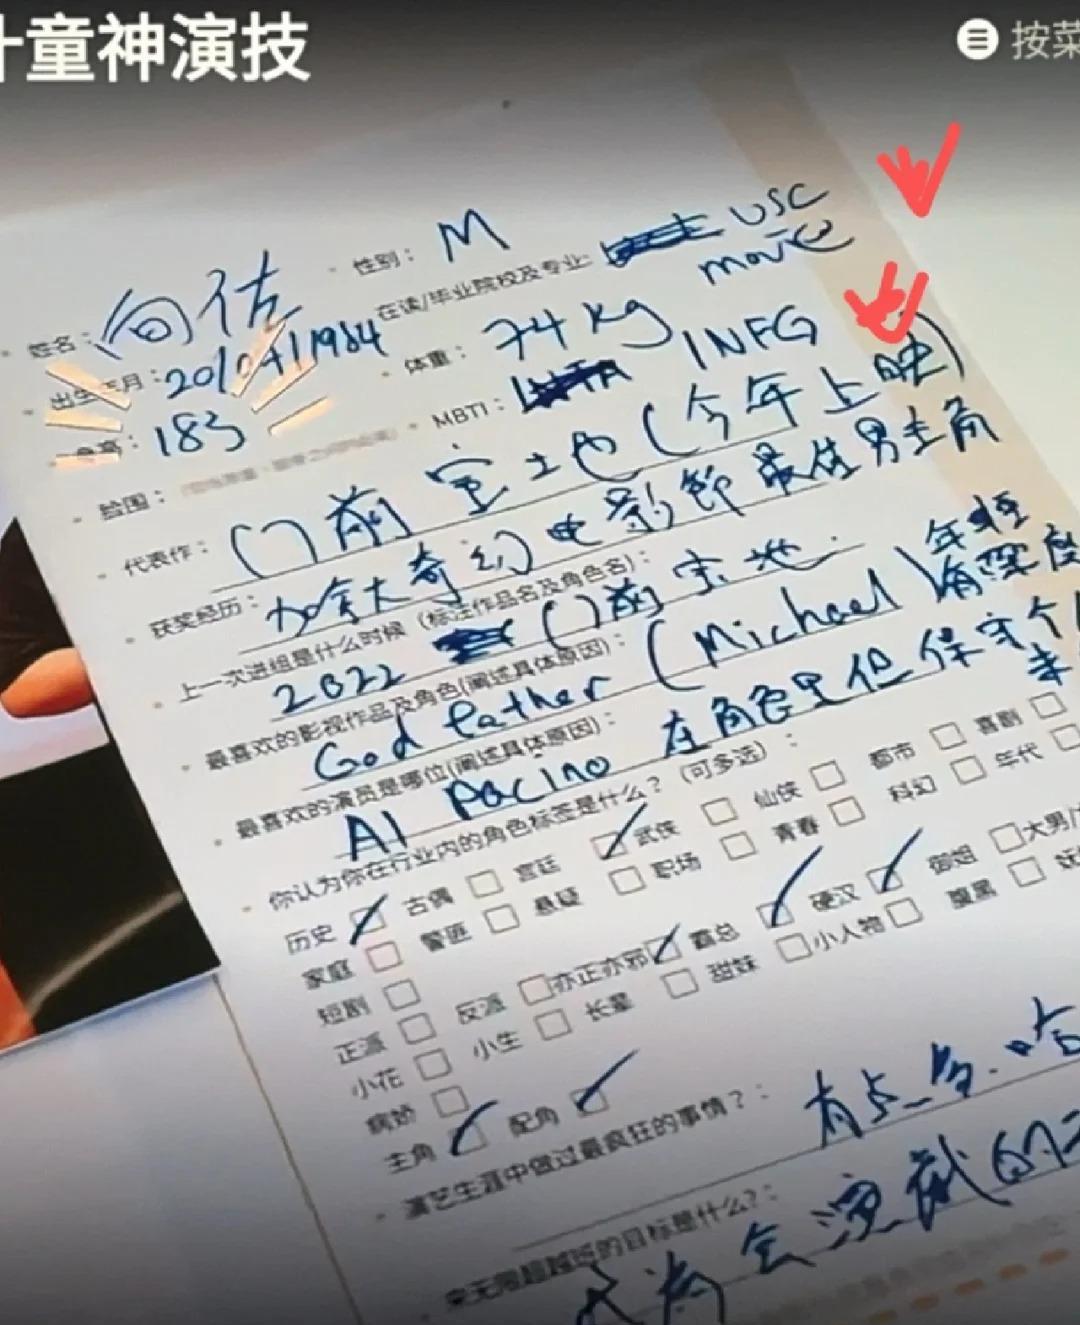 童神演技
按菜
姓名：向佐
性别：M
出生年月：20/09/1984
在读/毕业院校及专业：USC movie
身高：183
体重：74kg
脸围：
MBTI：INFG
代表作：门前宝地（今年上映）
获奖经历：加拿大奇幻电影節最佳男主角
上一次进组是什么时候（标注作品名及角色名）：
2022 门前宝地
最喜欢的影视作品及角色(阐述具体原因)：
God father (Michael) 年轻有深度
最喜欢的演员是哪位(阐述具体原因)：
Al Pacino 在角色里但保守个
你认为你在行业内的角色标签是什么？（可多选）：
历史 古偶 宫廷 武侠 仙侠 都市 喜剧
家庭 警匪 悬疑 职场 青春 科幻 年代
短剧
正派 反派 亦正亦邪 霸总 硬汉 御姐 大男
小花 小生 长辈 甜妹 小人物 腹黑
病娇
主角 配角
演艺生涯中做过最疯狂的事情？：有点多.哈
来无限超越班的目标是什么?：
会演戲的